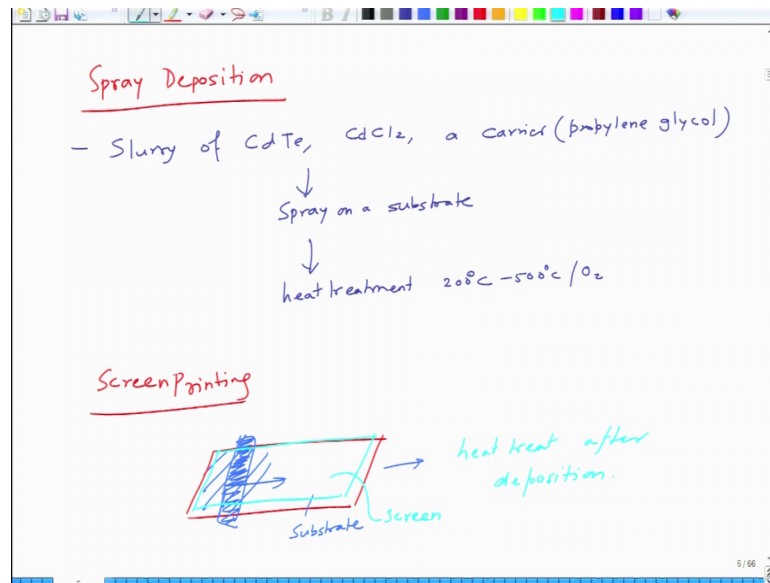 Spray Deposition
- Slurry of CdTe, CdCl2, a carrier (propylene glycol)
↓
Spray on a substrate
↓
heat treatment 200°C - 500°C / O2
Screen Printing
→ heat treat after
deposition.
Substrate
Screen
5 / 66